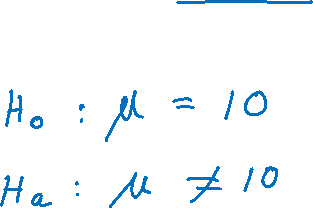 H₀ : μ = 10
Hₐ : μ ≠ 10